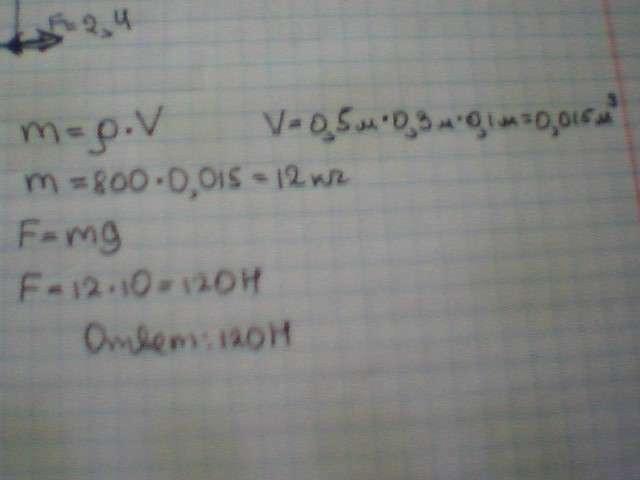 F=2,4
m=ρ·V V=0,5м·0,3м·0,1м=0,015м³
m=800·0,015=12кг
F=mg
F=12·10=120Н
Ответ:120Н